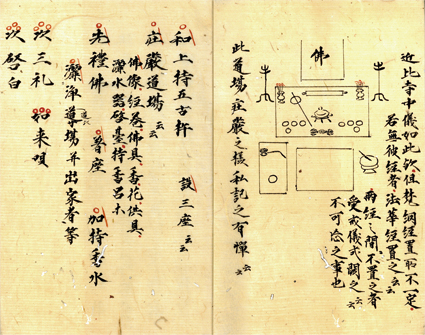 近比寺中儀如此歟但梵網經置所不一定
若無彼經者法華經置之云云
兩經之間不置之者
受戒儀式闕之云云
不可念之事也
佛
此道場莊嚴之様私記之有憚云云
和上持五古杵 設三座云云
莊嚴道場云云
佛像經卷佛具香花供具
灑水器硯臺持香呂等
先禮佛 普座 加持香水
灑淨道場并出家者等
次三礼 如来唄
次啓白